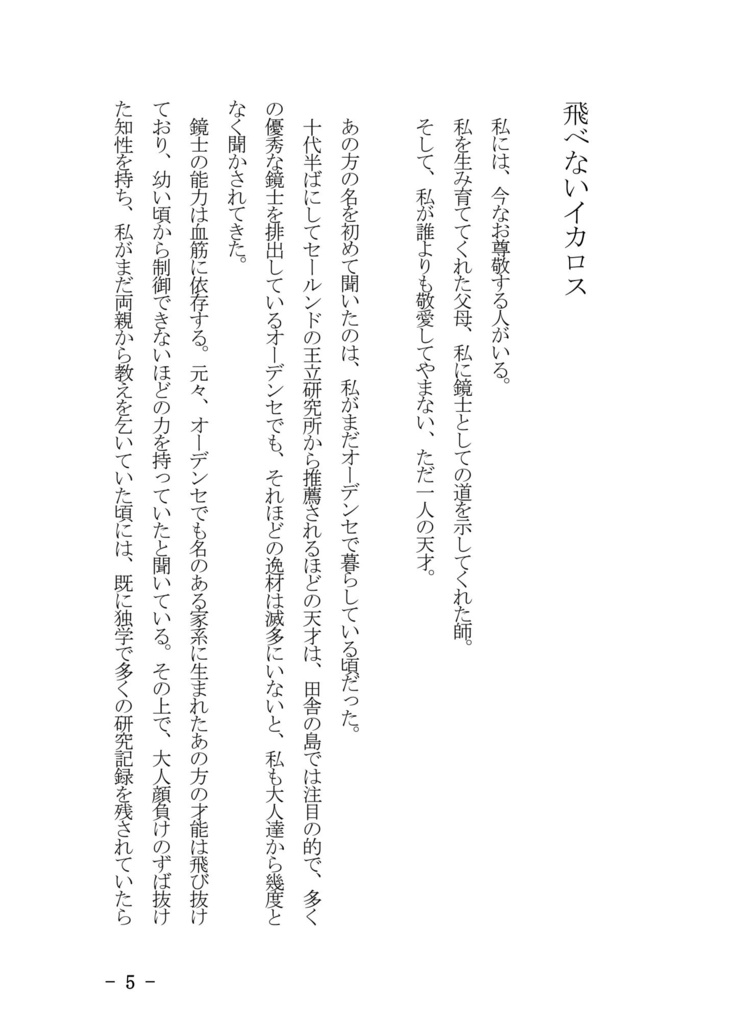 飛べないイカロス
私には、今なお尊敬する人がいる。
私を生み育ててくれた父母、私に鏡士としての道を示してくれた師。
そして、私が誰よりも敬愛してやまない、ただ一人の天才。
あの方の名を初めて聞いたのは、私がまだオーデンセで暮らしている頃だった。
十代半ばにしてセールンドの王立研究所から推薦されるほどの天才は、田舎の島では注目の的で、多く
の優秀な鏡士を排出しているオーデンセでも、それほどの逸材は滅多にいないと、私も大人達から幾度と
なく聞かされてきた。
鏡士の能力は血筋に依存する。元々、オーデンセでも名のある家系に生まれたあの方の才能は飛び抜け
ており、幼い頃から制御できないほどの力を持っていたと聞いている。その上で、大人顔負けのずば抜け
た知性を持ち、私がまだ両親から教えを乞いていた頃には、既に独学で多くの研究記録を残されていたら
- 5 -